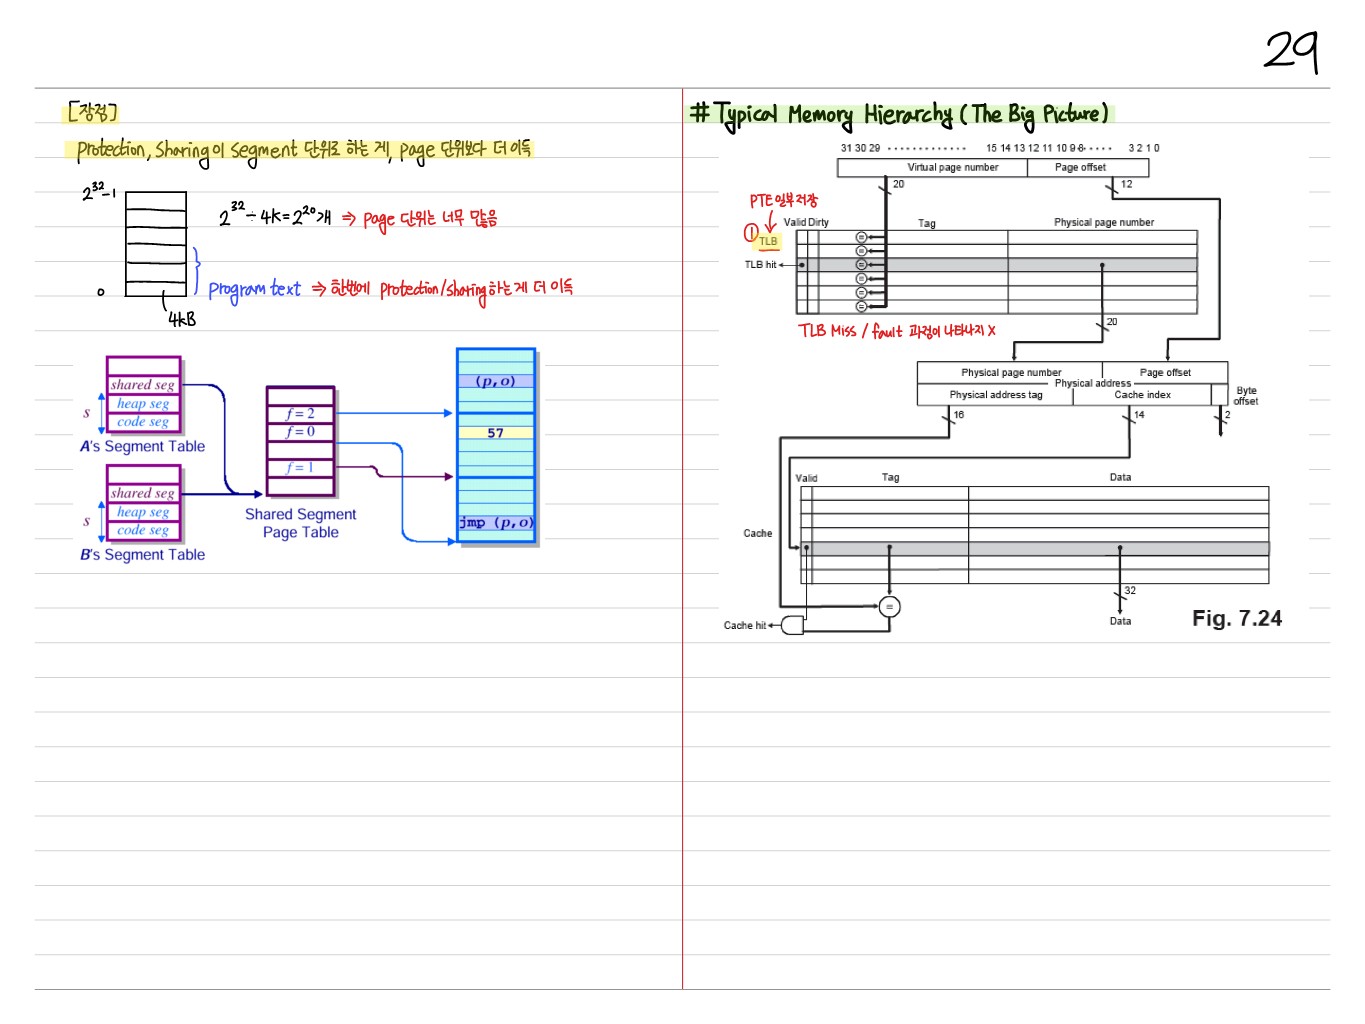 29
[장점]
Protection, Sharing이 segment 단위로 하는 게, page 단위보다 더 이득
2^32-1
2^32 ÷ 4k = 2^20개 ⇒ page 단위는 너무 많음
0
program text ⇒ 한번에 protection/sharing하는게 더 이득
4kB
shared seg
heap seg
code seg
s
A's Segment Table
shared seg
heap seg
code seg
s
B's Segment Table
f = 2
f = 0
f = 1
Shared Segment
Page Table
(p,o)
57
jmp (p,o)
# Typical Memory Hierarchy (The Big Picture)
31 30 29 ············· 15 14 13 12 11 10 9 8 ····· 3 2 1 0
Virtual page number Page offset
20 12
PTE 일부 저장
① TLB
Valid Dirty Tag Physical page number
= = = = = =
TLB hit
20
TLB Miss / fault 과정이 나타나지 X
Physical page number Page offset
Physical address
Physical address tag Cache index
Byte
offset
16 14 2
Valid Tag Data
Cache
32
=
Cache hit
Data
Fig. 7.24